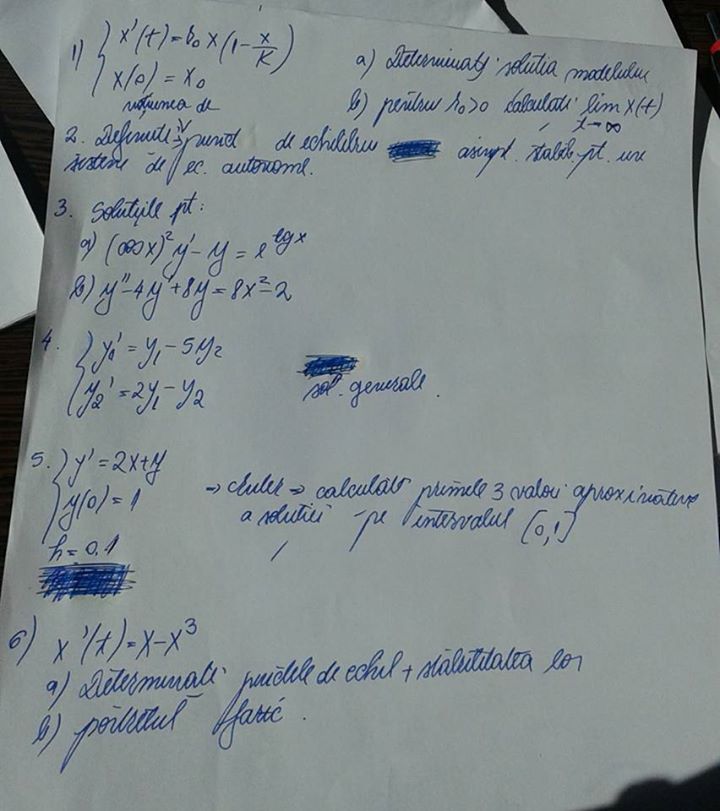 1) { x'(t) = r₀ x (1 - x/K)
x(0) = x₀
a) Determinați soluția modelului
b) pentru r₀>0 calculați lim x(t)
t→∞
noțiunea de
2. Definiți punct de echilibru asimpt. stabil pt. un
sistem de ec. autonome.
3. Soluțiile pt:
a) (cos x)² y' - y = e^tg x
b) y'' - 4y' + 8y = 8x² - 2
4. { y₁' = y₁ - 5y₂
y₂' = 2y₁ - y₂
sol. generale.
5. { y' = 2x+y
y(0) = 1
h = 0,1
→ Euler → calculați primele 3 valori aproximative
a soluției pe intervalul [0,1]
6) x'(t) = x - x³
a) Determinați punctele de echil + stabilitatea lor
b) portretul fazic.